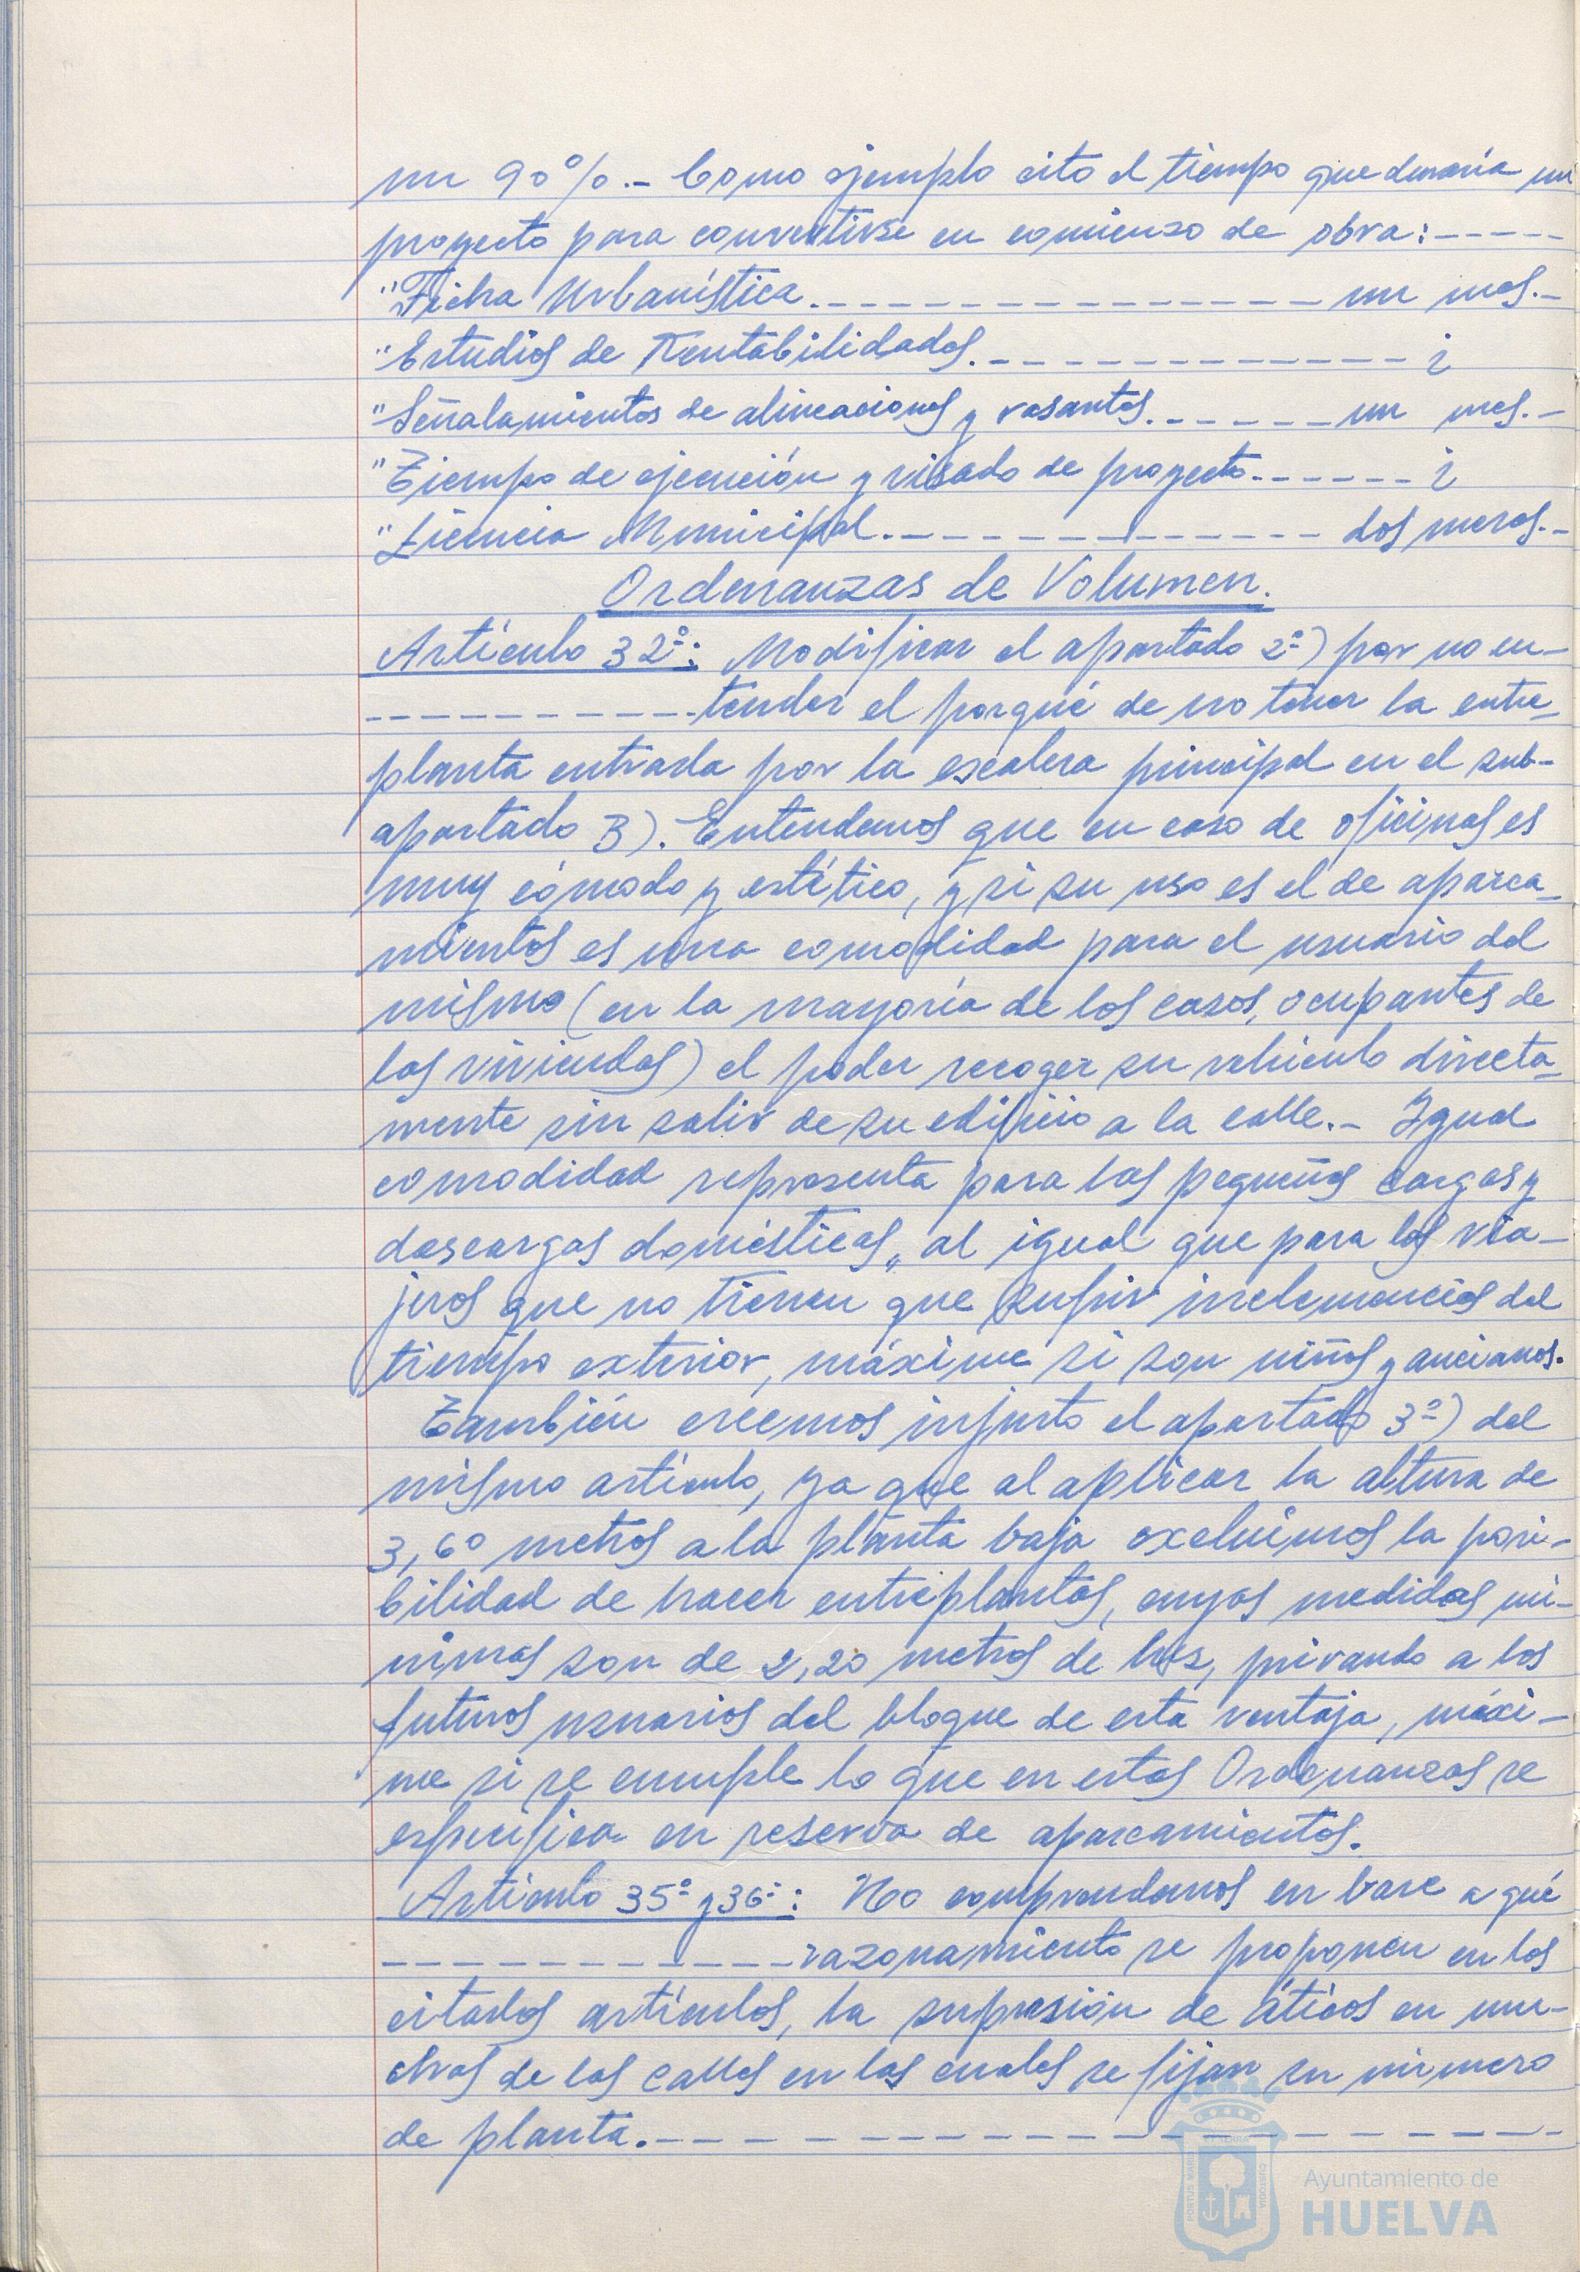 un 90%.- Como ejemplo cito el tiempo que duraría un
proyecto para convertirse en comienzo de obra:-----
"Ficha Urbanística.------------------un mes.-
"Estudios de Rentabilidades.---------------¿
"Señalamientos de alineaciones y rasantes.------un mes.-
"Tiempo de ejecución y visado de proyecto.------¿
"Licencia Municipal.---------------dos meses.-
Ordenanzas de Volumen.
Artículo 32º: Modificar el apartado 2º) por no en-
-----------tender el porqué de no tener la entre-
planta entrada por la escalera principal en el sub-
apartado B). Entendemos que en caso de oficinas es
muy cómodo y estético, y si su uso es el de aparca-
mientos es una comodidad para el usuario del
mismo (en la mayoría de los casos, ocupantes de
las viviendas) el poder recoger su vehiculo directa-
mente sin salir de su edificio a la calle.- Igual
comodidad representa para las pequeñas cargas y
descargas domésticas, al igual que para los via-
jeros que no tienen que sufrir inclemencias del
tiempo exterior, máxime si son niños y ancianos.
También creemos injusto el apartado 3º) del
mismo artículo, ya que al aplicar la altura de
3,60 metros a la planta baja excluimos la posi-
bilidad de hacer entreplantas, cuyas medidas mí-
nimas son de 2,20 metros de luz, privando a los
futuros usuarios del bloque de esta ventaja, máxi-
me si se cumple lo que en estas Ordenanzas se
especifica en reserva de aparcamientos.
Artículo 35º y 36º: No comprendemos en base a qué
--------------razonamiento se proponen en los
citados artículos, la supresión de áticos en mu-
chas de las calles en las cuales se fijan su número
de planta.------------------
Ayuntamiento de
HUELVA